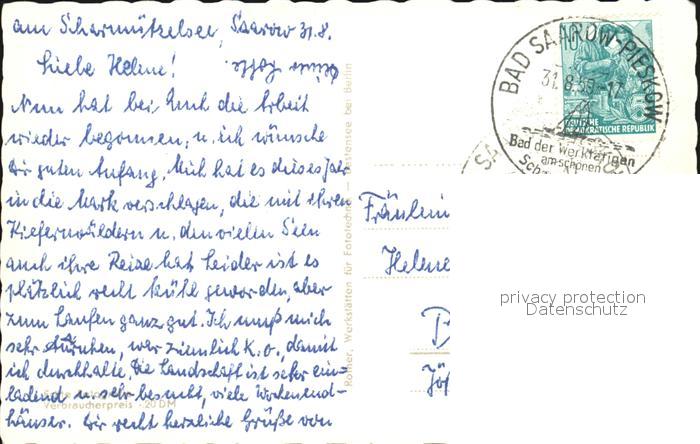 am Scharmützelsee, Saarow 31.8.
Liebe Helene!
Nun hat bei Euch die Arbeit
wieder begonnen, u. ich wünsche
Dir guten Anfang. Mich hat es dieses Jahr
in die Mark verschlagen, die mit ihren
Kiefernwäldern u. den vielen Seen
auch ihre Reize hat. Leider ist es
plötzlich recht kühl geworden, aber
zum Laufen ganz gut. Ich muß mich
sehr ausruhen, war ziemlich k.o., damit
ich durchhalte. Die Landschaft ist sehr ein-
ladend u. sehr besucht, viele Wochenend-
häuser. Dir recht herzliche Grüße von
Verbraucherpreis -20 DM
Werkstätten für Fototechnik – Weißensee bei Berlin
Fräulein
Helene
BAD SAAROW-PIESKOW
31.8.59-17
Bad der Werktätigen
am schönen
10 5
DEUTSCHE
DEMOKRATISCHE REPUBLIK
SA
privacy protection
Datenschutz